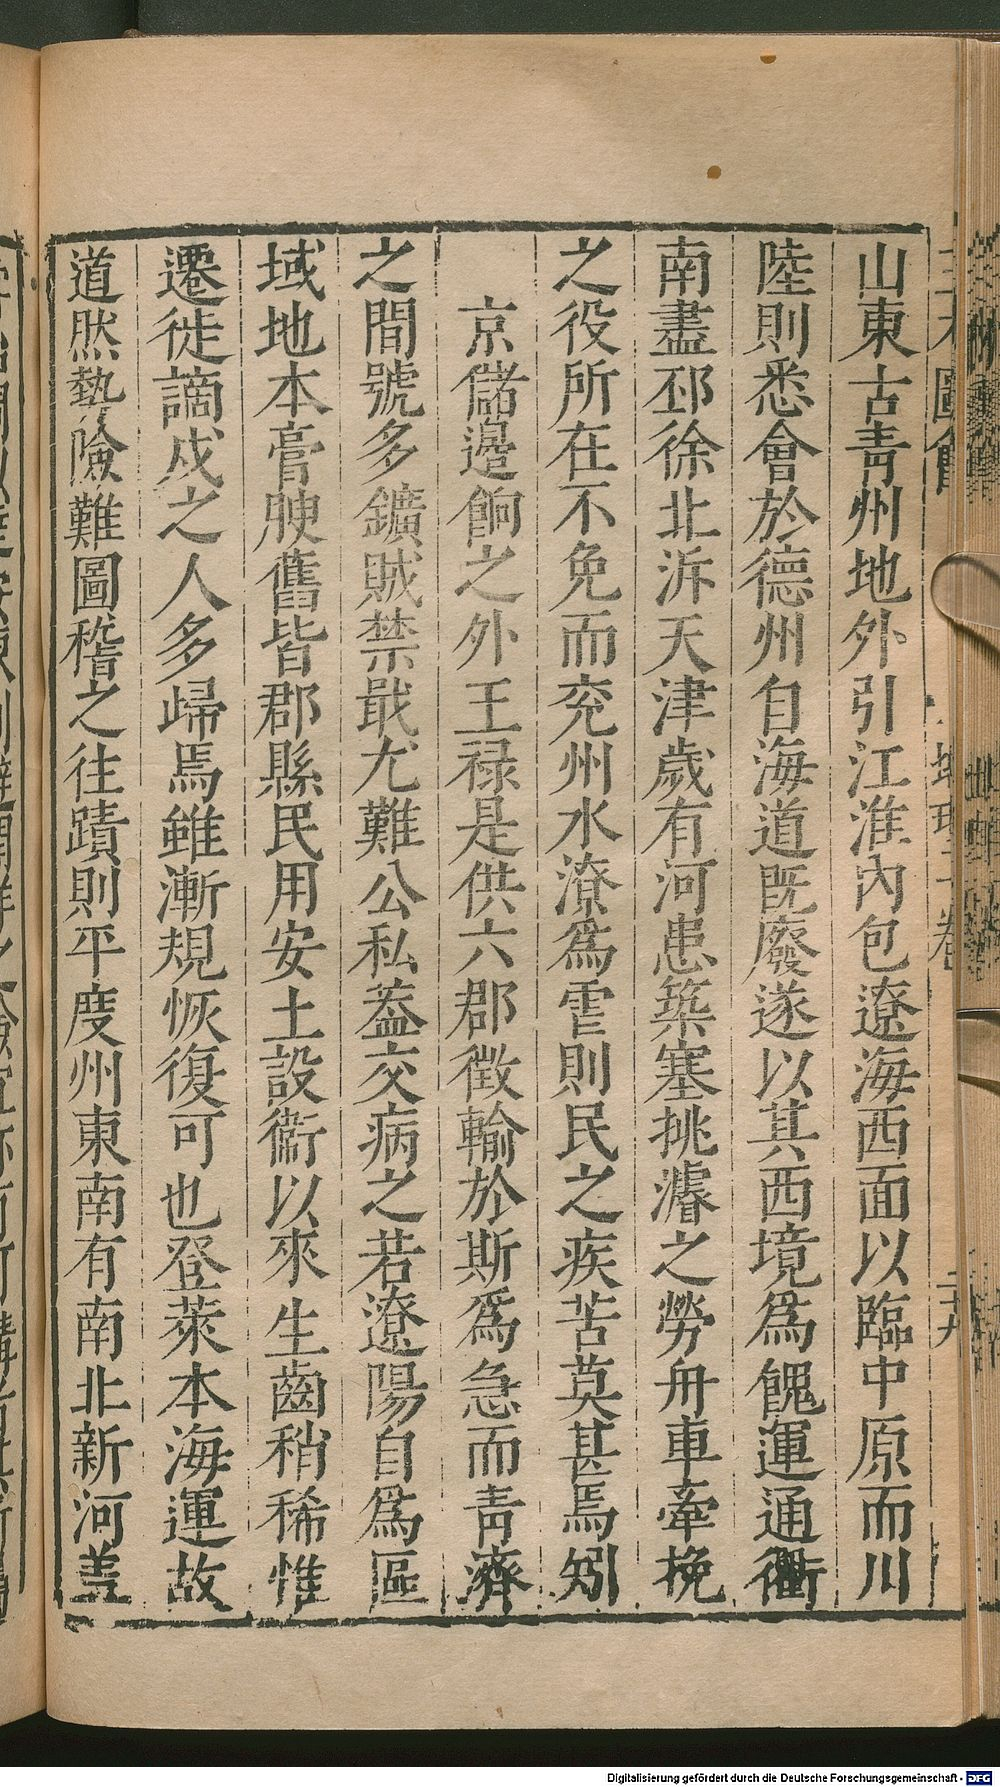 山東古青州地外引江淮內包遼海西面以臨中原而川
陸則悉會於德州自海道既廢遂以其西境爲餽運通衢
南盡邳徐北泝天津歲有河患築塞挑濬之勞舟車牽挽
之役所在不免而兖州水潦爲雪則民之疾苦莫甚焉矧
京儲邉餉之外王禄是供六郡徵輸於斯爲急而青濟
之間號多鑛賊禁戢尤難公私葢交病之若遼陽自爲區
域地本膏腴舊皆郡縣民用安土設衞以來生齒稍稀惟
遷徙謫戍之人多歸焉雖漸規恢復可也登萊本海運故
道然勢險難圖稽之往蹟則平度州東南有南北新河葢
圖會
Digitalisierung gefördert durch die Deutsche Forschungsgemeinschaft - DFG